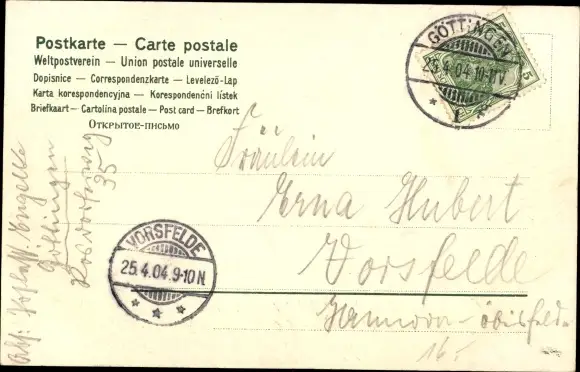 Postkarte — Carte postale
Weltpostverein — Union postale universelle
Dopisnice — Correspondenzkarte — Levelező-Lap
Karta korespondencyjna — Korespondenční lístek
Briefkaart — Cartolina postale — Post card — Brefkort
Открытое-письмо
GÖTTINGEN
25.4.04.10-11V
1
5
Fräulein
Erna Hubert
Vorsfelde
Hannover-Öbisfelde
16.-
VORSFELDE
25.4.04.9-10N
Abs: Engelke
Göttingen
35